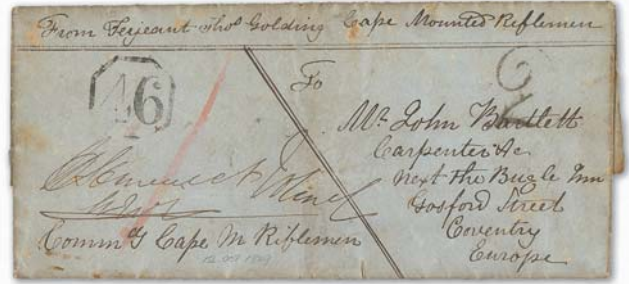 From Serjeant Thos Golding Cape Mounted Riflemen
46
To
Mr. John Bartlett
Carpenter &c
next the Bugle Inn
Gosford Street
Coventry
Europe
Commg Cape M Riflemen